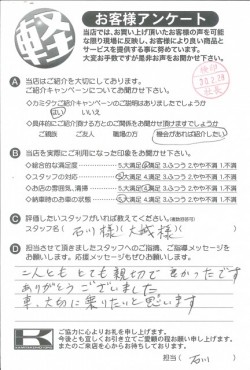 軽
お客様アンケート
当店では、お買い上げ頂いたお客様の声を可能
な限り現場に反映し、お客様により良い商品と
サービスを提供する事に努めています。
大変お手数ですが是非お声をお聞かせ下さい。
A 当店はご紹介を大切にしてあります。
ご紹介キャンペーンについてお聞かせ下さい。
◇カミタケご紹介キャンペーンのご説明はありましたでしょうか
はい いいえ
◇具体的にご紹介頂ける方との関係をお聞かせ頂けますでしょうか
ご親族 ご友人 職場の方 機会があれば紹介したい
B 当店を実際にご利用になった印象をお聞かせ下さい。
◇総合的な満足度 5.大満足 4.満足 3.ふつう 2.やや不満 1.不満
◇スタッフの対応 5.大満足 4.満足 3.ふつう 2.やや不満 1.不満
◇お店の雰囲気、清掃 5.大満足 4.満足 3.ふつう 2.やや不満 1.不満
◇納車時のお車の状態 5.大満足 4.満足 3.ふつう 2.やや不満 1.不満
C 評価したいスタッフがいれば教えてください。(複数回答可)
スタッフ名 ( 石川様)(大城様)
D 担当させて頂きましたスタッフへのご指摘、ご指導メッセージを
お願いします。応援メッセージもぜひお願いします。
二人とも とても 親切で よかったです
ありがとうございました
車、大切に乗りたいと思います
K
ご協力に心よりお礼を申し上げます。
今後とも宜しくお引き立てご愛顧の程お願い申し上げます。
またのご来店を心からお待ちしております。
担当( 石川 )